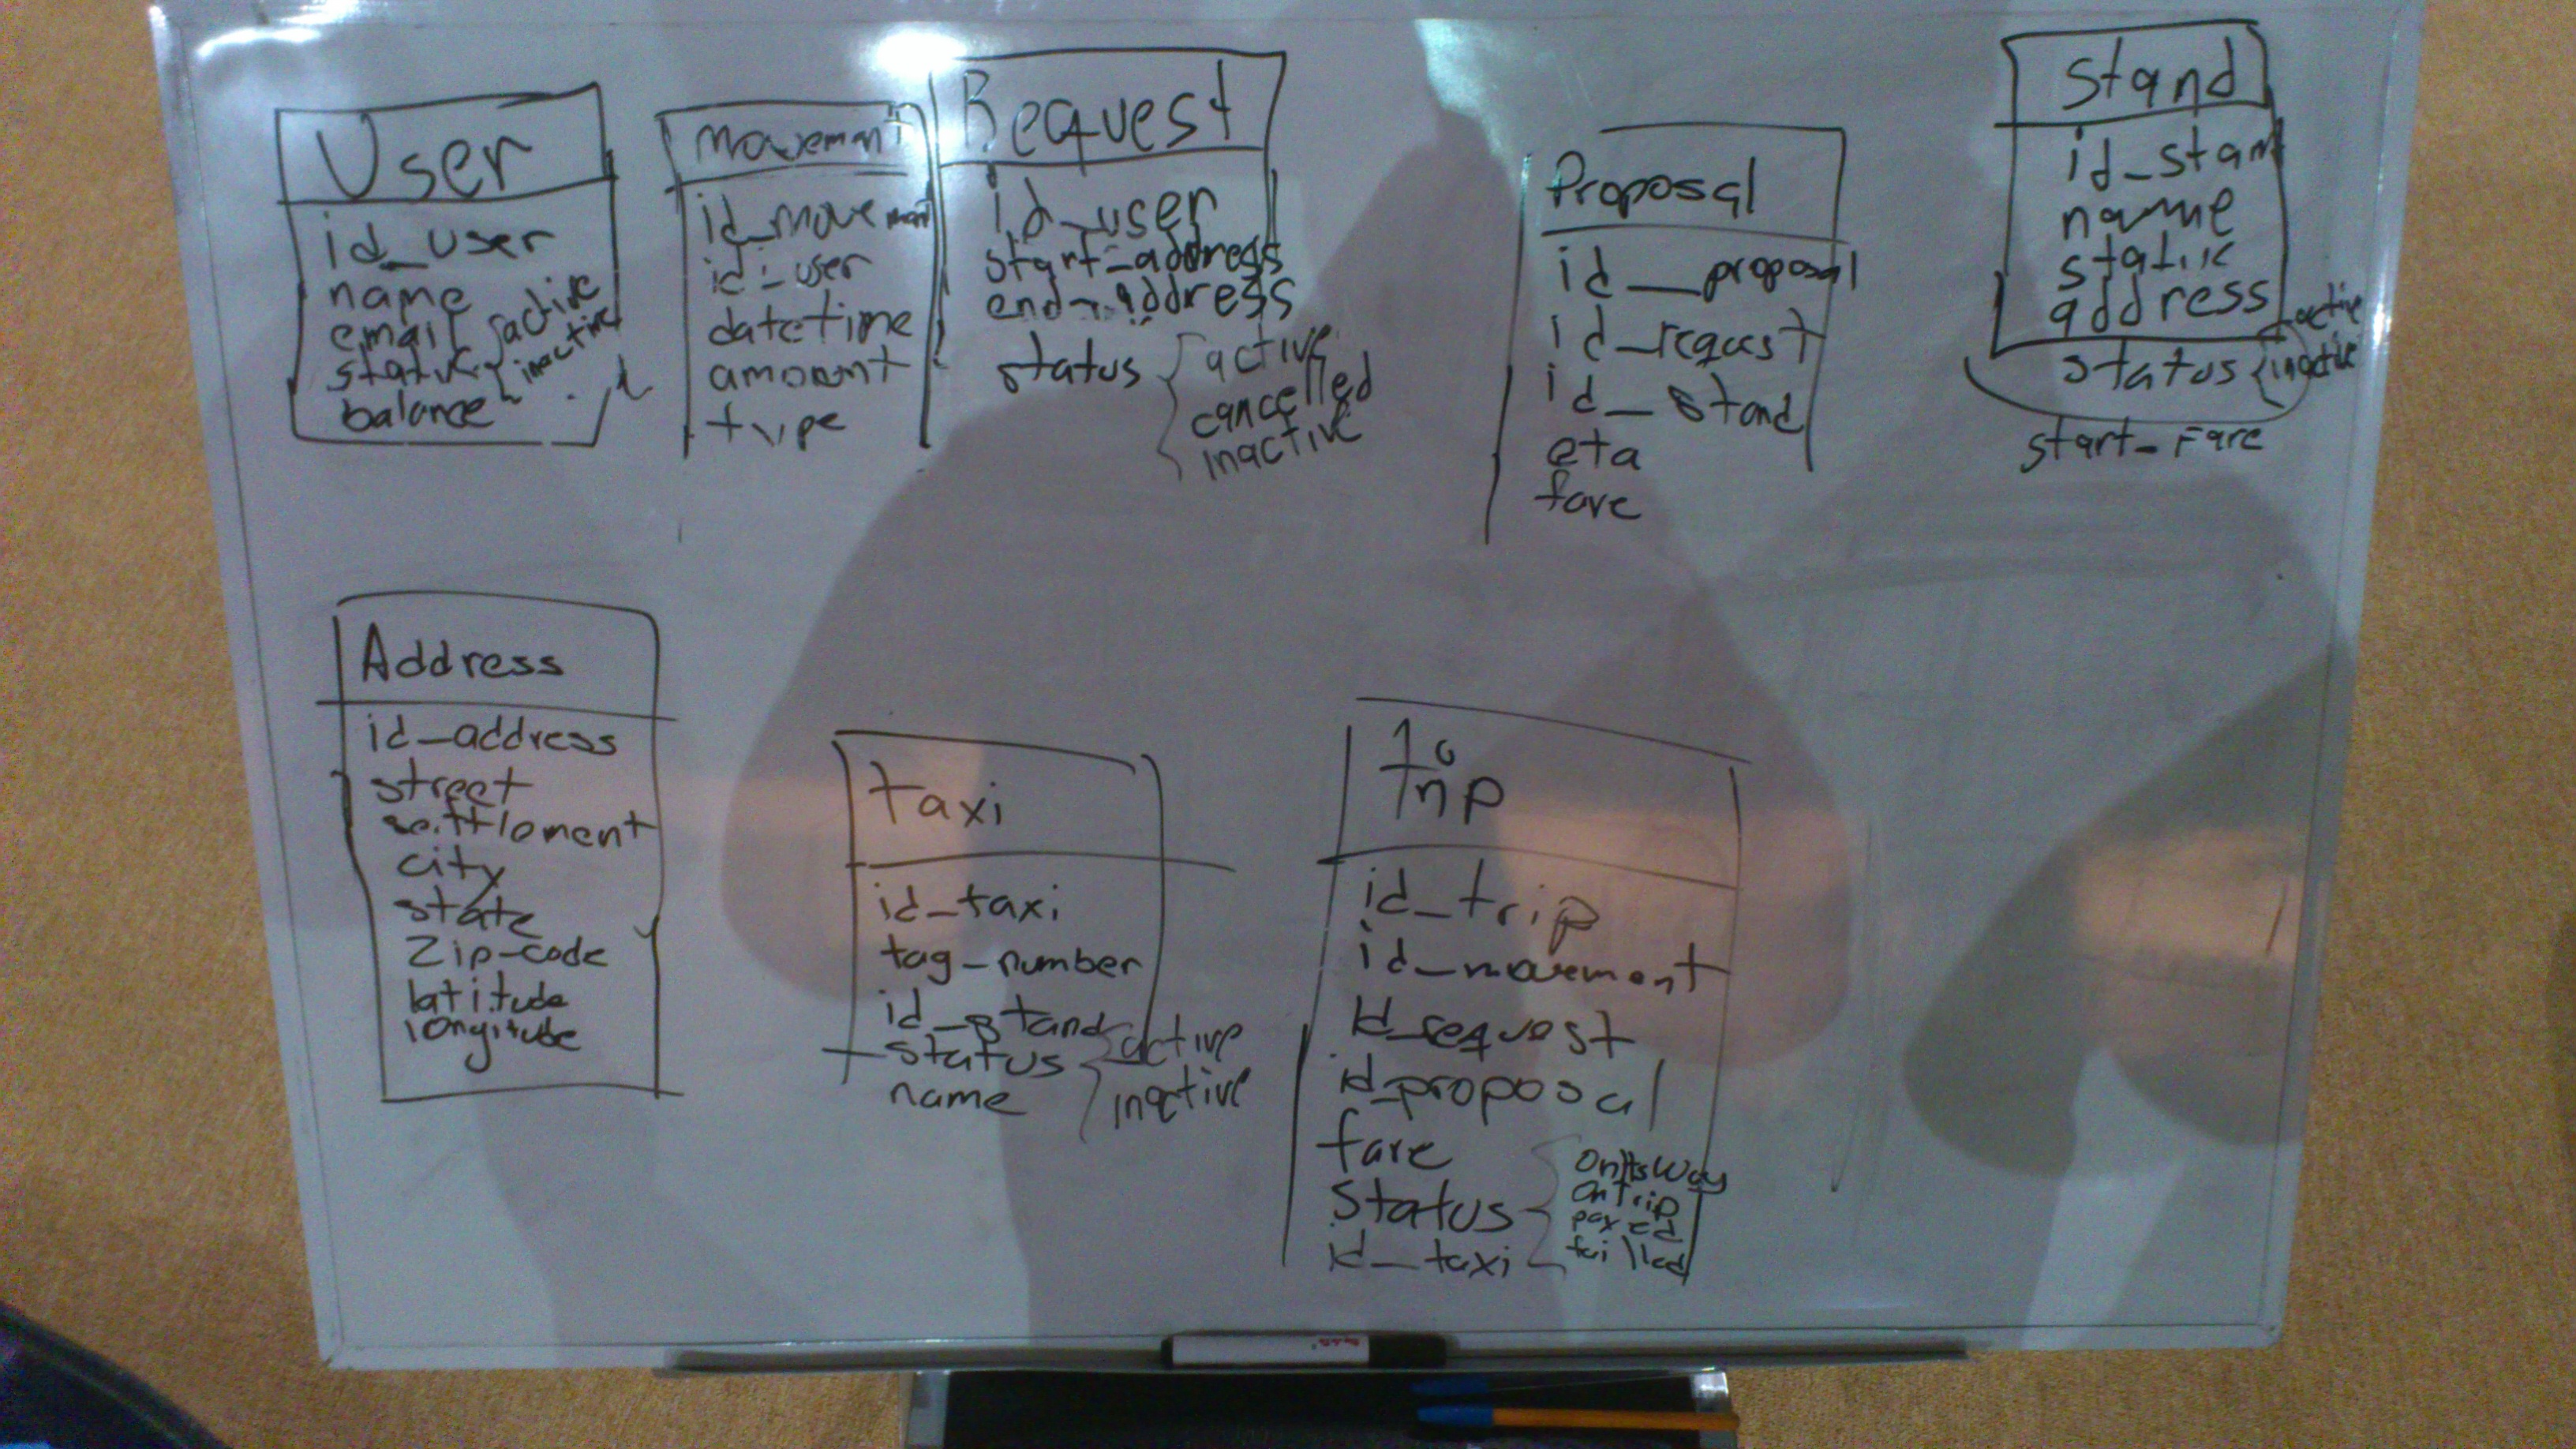 User
id_user
name
email
status { active
inactive
balance
movement
id_movement
id_user
datetime
amount
type
Request
id_user
start_address
end_address
status { active
cancelled
inactive
Proposal
id_proposal
id_request
id_stand
eta
fare
Stand
name
address
status { active
inactive
start_Fare
Address
id_address
street
settlement
city
state
Zip-code
latitude
longitude
taxi
id_taxi
tag_number
id_stand
status { active
inactive
name
trip
id_trip
id_movement
id_request
id_proposal
fare
Status { OnItsWay
OnTrip
payed
failled
id_taxi